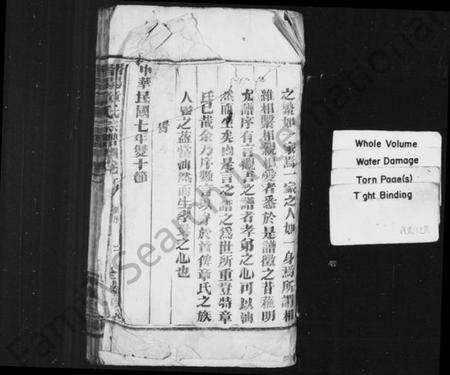 之繁如一家焉一家之人如一身焉所謂相
維相繫相親相愛者悉於是譜徵之昔蘇明
允譜序有云觀吾之譜者孝弟之心可以油
然而生矣由是言之譜之為世所重豈特章
氏已哉余乃序數言以弁於首俾章氏之族
人覽之益當油然而生孝弟之心也
中華民國七年雙十節
Whole Volume
Water Damage
Torn Page(s)
Tight Binding
FamilySearch International